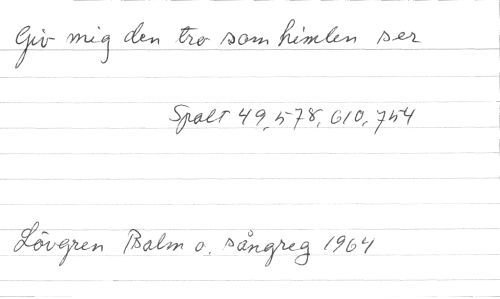 Giv mig den tro som himlen ser
Spalt 49, 578, 610, 754
Lövgren Psalm o. sångreg 1964